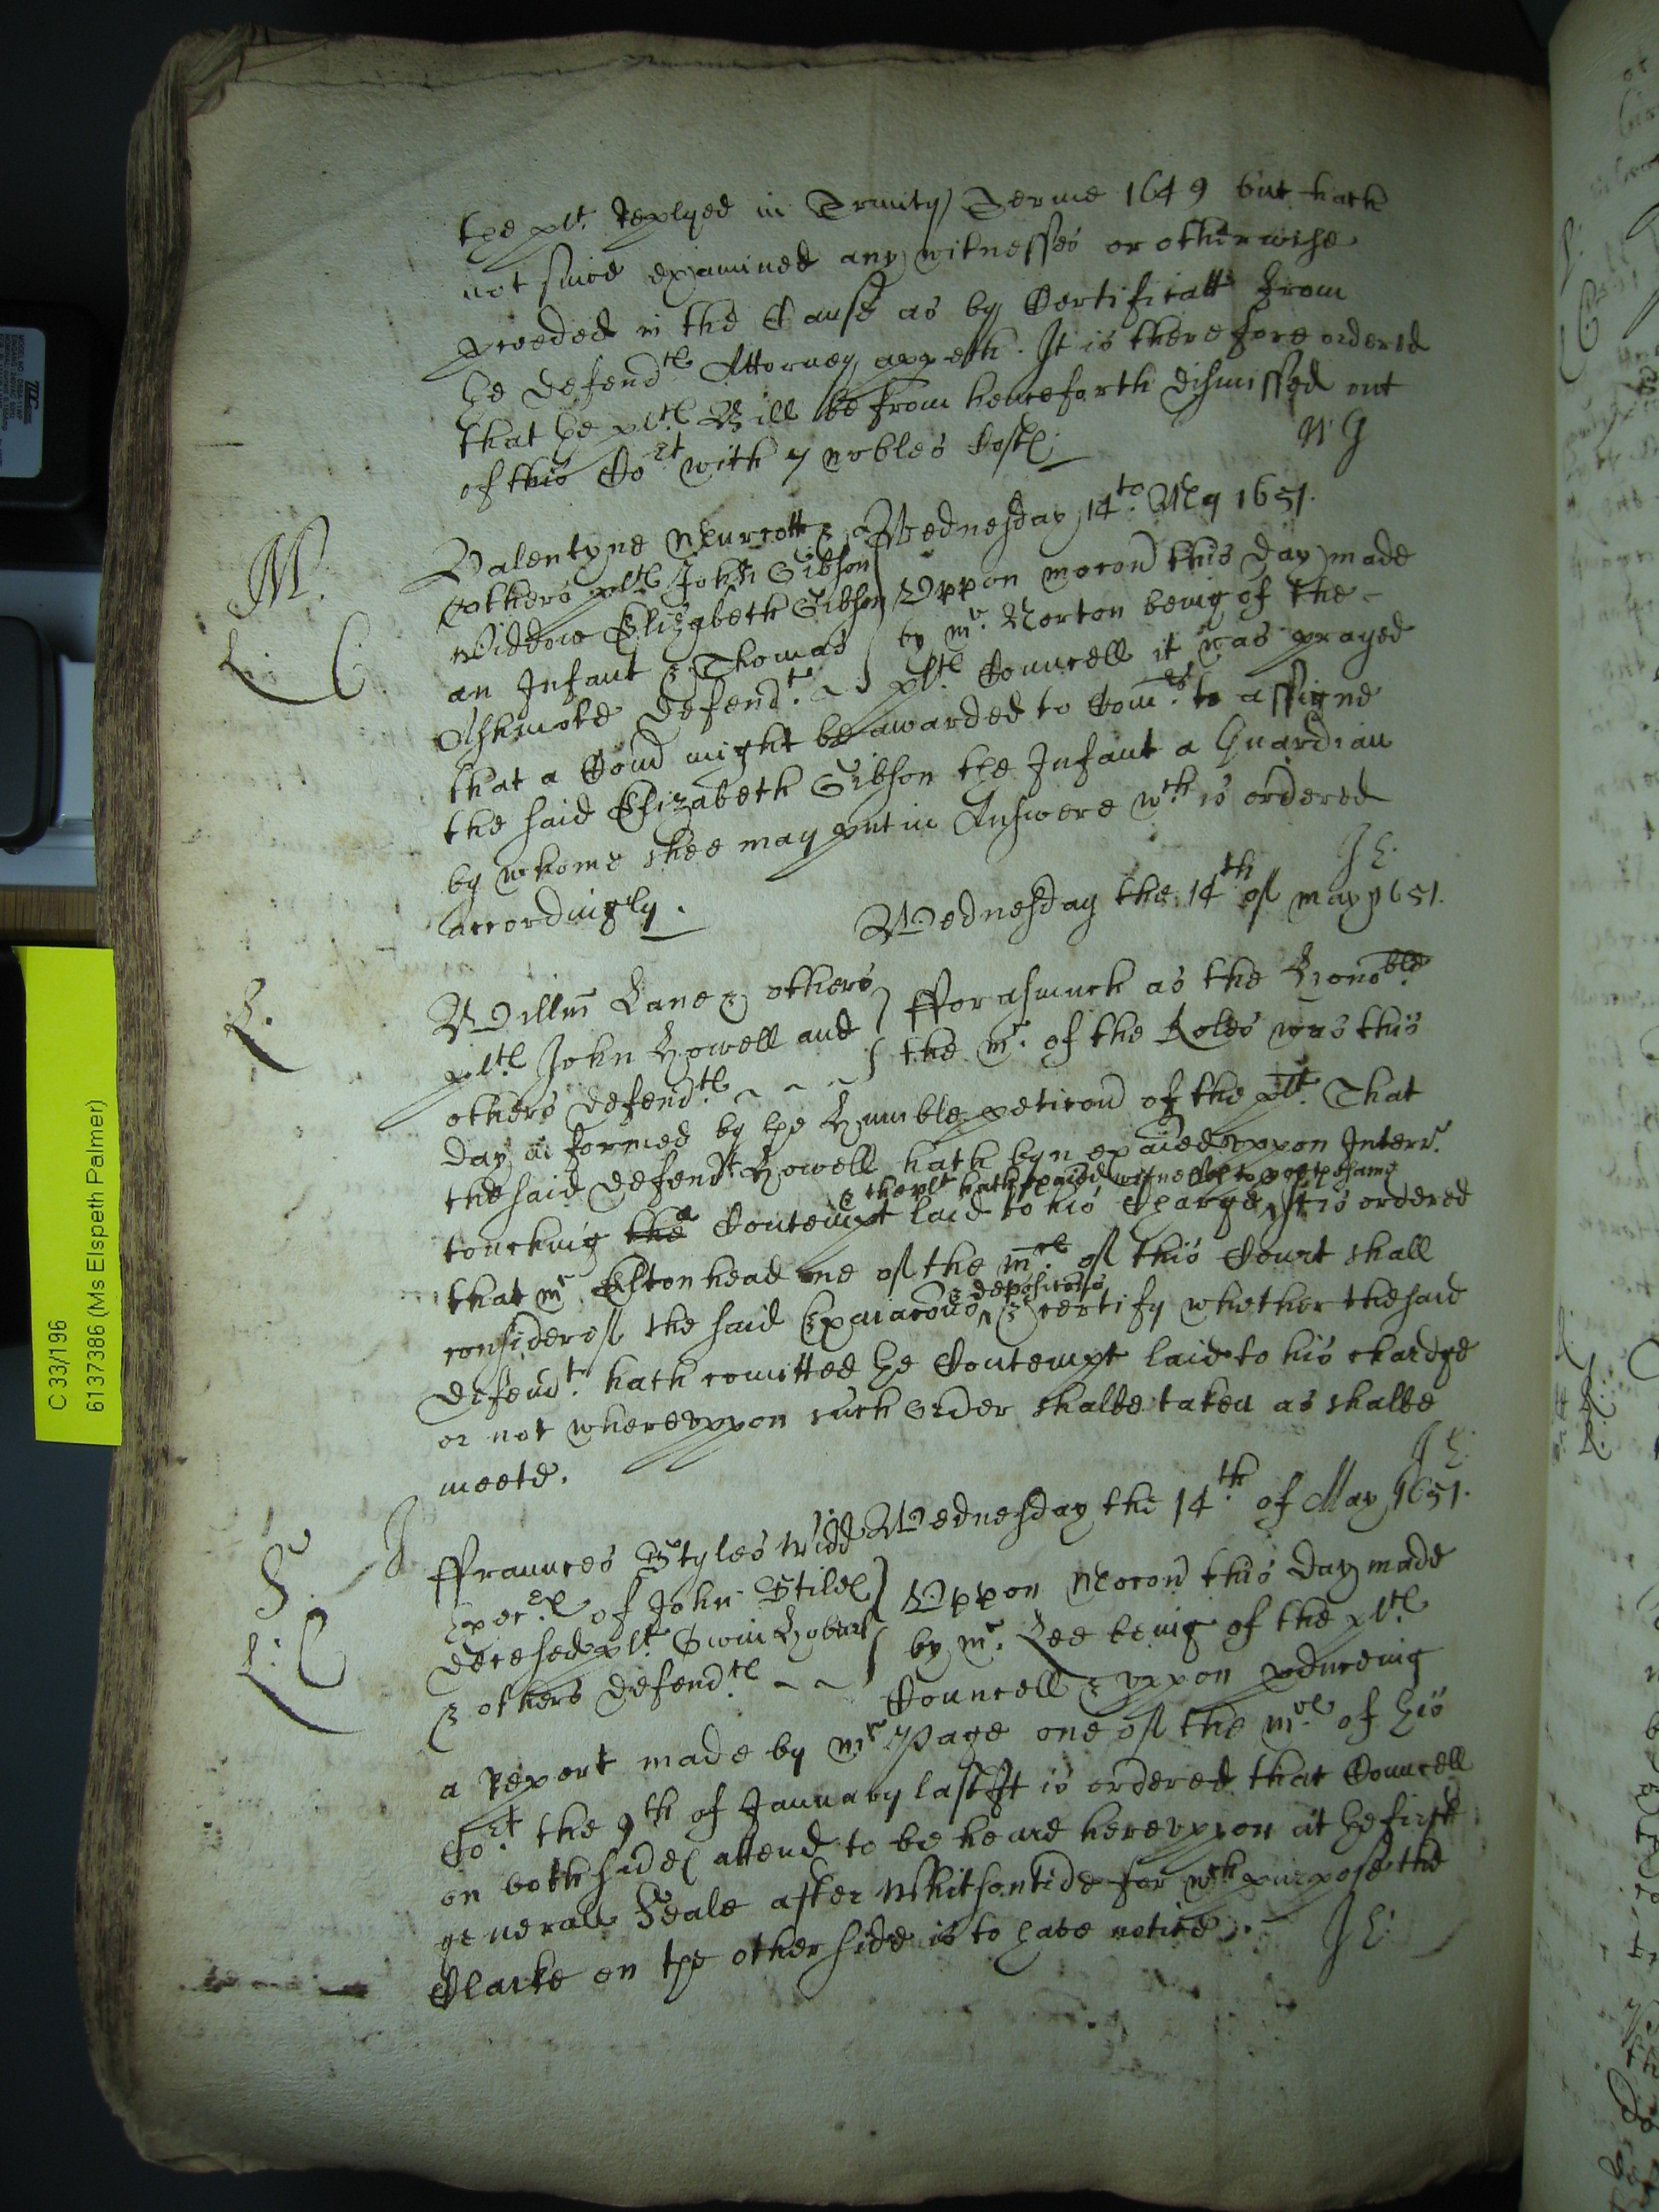 the plt replyed in Trinity Terme 1649 but hath
not since examined any witnesses or otherwise
proceded in the Cause as by Certificatt from
he defendts Attorney appeth. It is therefore ordered
that he plts Bill be from henceforth dismissed out
of this Cort with 7 nobles Costs
W G
M.
L: C
Valentyne Murcott & Wednesday 14to May 1651.
others plts John Gibson
Widdow Elizabeth Gibson Vppon mocon this day made
an Infant & Thomas by mr. Norton being of the
Ashmole defendts plts Councell it was prayed
that a Comn might be awarded to Comrs to assigne
the said Elizabeth Gibson the Infant a Guardian
by whome shee may put in Answere wch is ordered
accordingly.
J L:
Wednesday the 14th of may 1651.
L.
Willm Lane & others fforasmuch as the Honoble
plts John Howell and the mr. of the Roles was this
others defendts
day informed by the Humble peticon of the plt. That
the said defendt Howell hath byn exaied vppon Interr.
& the plt hath exaied witnesses to prove the same
touching the a Contempt laid to his Charge, It is ordered
that mr Elstonhead one of the mrs of this Court shall
& deposicons
consider of the said Exaiacons & certify whether the said
defendt. hath comitted he Contempt laid to his chardge
or not wherevppon such order shalbe taken as shalbe
meete.
J L:
S J
L: C
ffraunces Styles Widd Wednesday the 14th of May 1651.
Execrx of John Stiles
decesed plt Gwin Hobart Vppon Mocon this day made
& others defendts by mr. Lee being of the plts
Councell & vppon pduceing
a Report made by mr Page one of the mrs of his
Cort the 9th of January last It is ordered that Councell
on both sides attend to be heard herevppon at he first
generall Seale after Whitsontide for wch purpose the
Clarke on the other side is to have notice.
J L:
C 33/196
61377386 (Ms Elspeth Palmer)